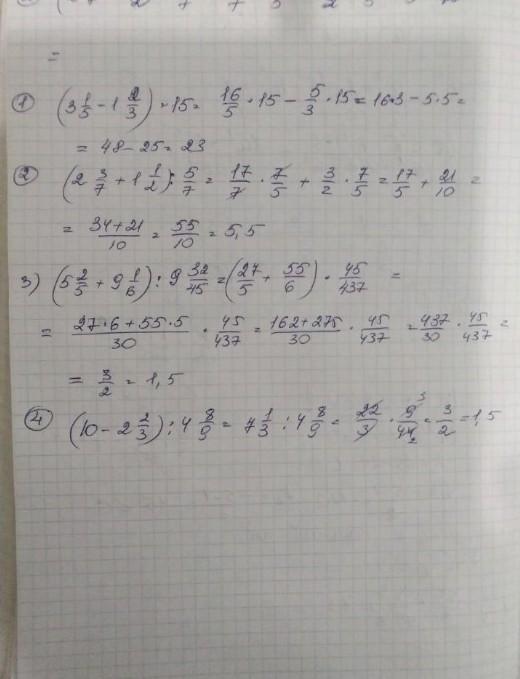 =
① (3 1/5 - 1 2/3) · 15 = 16/5 · 15 - 5/3 · 15 = 16·3 - 5·5 =
= 48 - 25 = 23
② (2 3/7 + 1 1/2) : 5/7 = 17/7 · 7/5 + 3/2 · 7/5 = 17/5 + 21/10 =
= 34+21/10 = 55/10 = 5,5
3) (5 2/5 + 9 1/6) : 9 32/45 = (27/5 + 55/6) · 45/437 =
= 27·6 + 55·5/30 · 45/437 = 162+275/30 · 45/437 = 437/30 · 45/437 =
= 3/2 = 1,5
④ (10 - 2 2/3) : 4 8/9 = 7 1/3 : 4 8/9 = 22/3 · 9 3/44 2 = 3/2 = 1,5